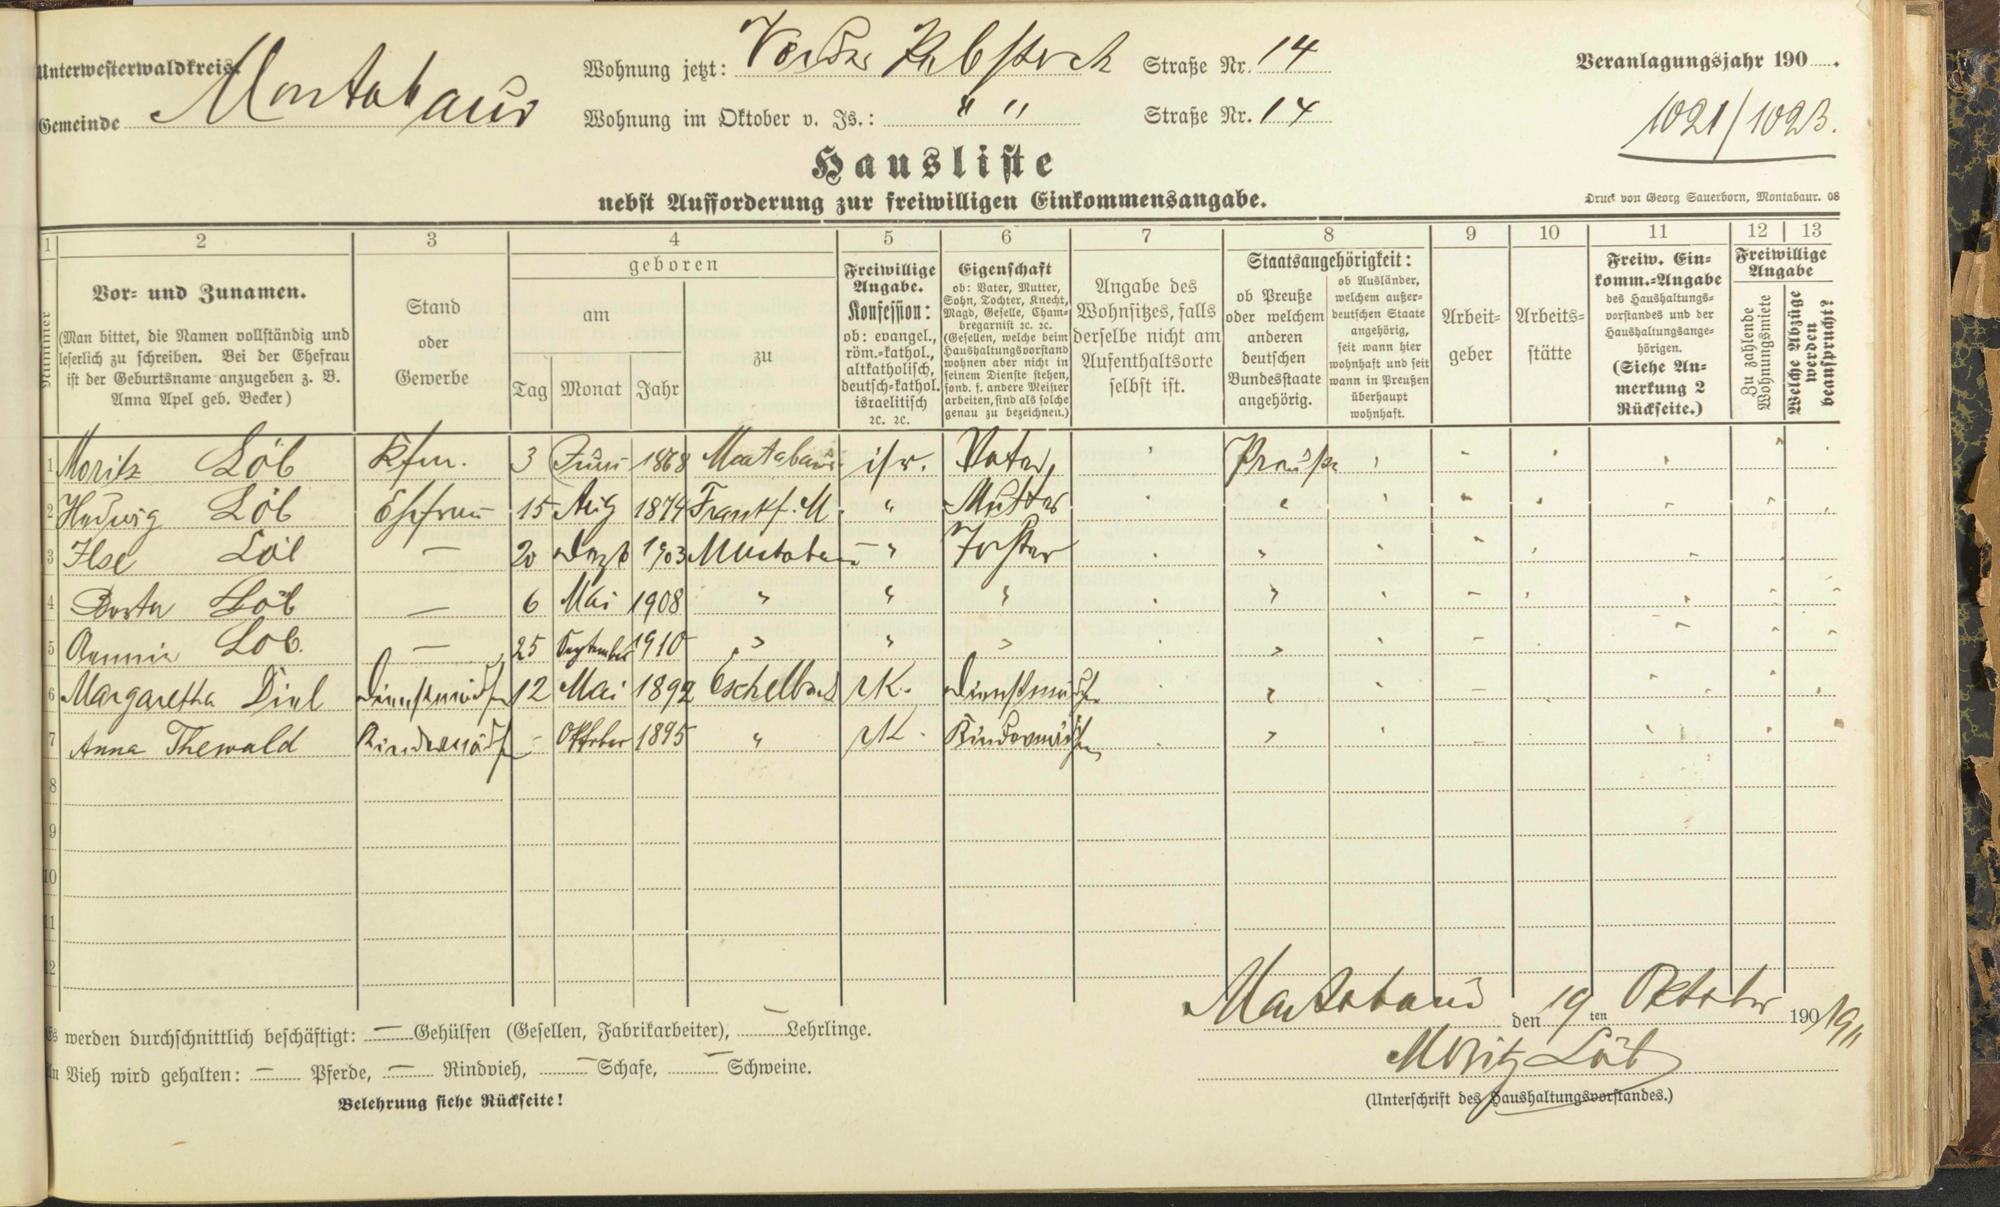 Unterwesterwaldkreis. Wohnung jetzt: Vorder Rebstock Straße Nr. 14 Veranlagungsjahr 190 .
Gemeinde Montabaur Wohnung im Oktober v. Js.: " " Straße Nr. 14
1021/1023.
Hausliste
nebst Aufforderung zur freiwilligen Einkommensangabe.
Druck von Georg Sauerborn, Montabaur. 08
1 2 3 4 5 6 7 8 9 10 11 12 13
Nummer
Vor- und Zunamen.
(Man bittet, die Namen vollständig und
leserlich zu schreiben. Bei der Ehefrau
ist der Geburtsname anzugeben z. B.
Anna Apel geb. Becker)
Stand
oder
Gewerbe
geboren
am
Tag Monat Jahr
zu
Freiwillige
Angabe.
Konfession:
ob: evangel.,
röm.-kathol.,
altkatholisch,
deutsch-kathol.
israelitisch
2c. 2c.
Eigenschaft
ob: Vater, Mutter,
Sohn, Tochter, Knecht,
Magd, Geselle, Cham-
bregarnist 2c. 2c.
(Gesellen, welche beim
Haushaltungsvorstand
wohnen aber nicht in
seinem Dienste stehen,
sond. f. andere Meister
arbeiten, sind als solche
genau zu bezeichnen.)
Angabe des
Wohnsitzes, falls
derselbe nicht am
Aufenthaltsorte
selbst ist.
Staatsangehörigkeit:
ob Preuße
oder welchem
anderen
deutschen
Bundesstaate
angehörig.
ob Ausländer,
welchem außer-
deutschen Staate
angehörig,
seit wann hier
wohnhaft und seit
wann in Preußen
überhaupt
wohnhaft.
Arbeit-
geber
Arbeits-
stätte
Freiw. Ein-
komm.-Angabe
des Haushaltungs-
vorstandes und der
Haushaltungsange-
hörigen.
(Siehe An-
merkung 2
Rückseite.)
Freiwillige
Angabe
Zu zahlende
Wohnungsmiete
Welche Abzüge
werden
beansprucht?
1 Moritz Löb Kfm. 3 Juni 1868 Montabaur isr. Vater Preuße
2 Hedwig Löb Ehefrau 15 Aug 1874 Frankf. M. " Mutter "
3 Ilse Löb — 20 Dezb 1903 Montabaur " Tochter "
4 Berta Löb — 6 Mai 1908 " " " "
5 Löb. — 25 September 1910 " " " "
6 Margaretha Diel Dienstmädchen 12 Mai 1892 Eschelbach rK. Dienstmädchen "
7 Anna Thewald Kindermädchen - Oktober 1895 " rK. Kindermädchen "
8
9
10
11
12
Montabaur den 19 ten Oktober 190 1911
Es werden durchschnittlich beschäftigt: — Gehülfen (Gesellen, Fabrikarbeiter), — Lehrlinge.
Moritz Löb
An Vieh wird gehalten: — Pferde, — Rindvieh, — Schafe, — Schweine.
(Unterschrift des Haushaltungsvorstandes.)
Belehrung siehe Rückseite!